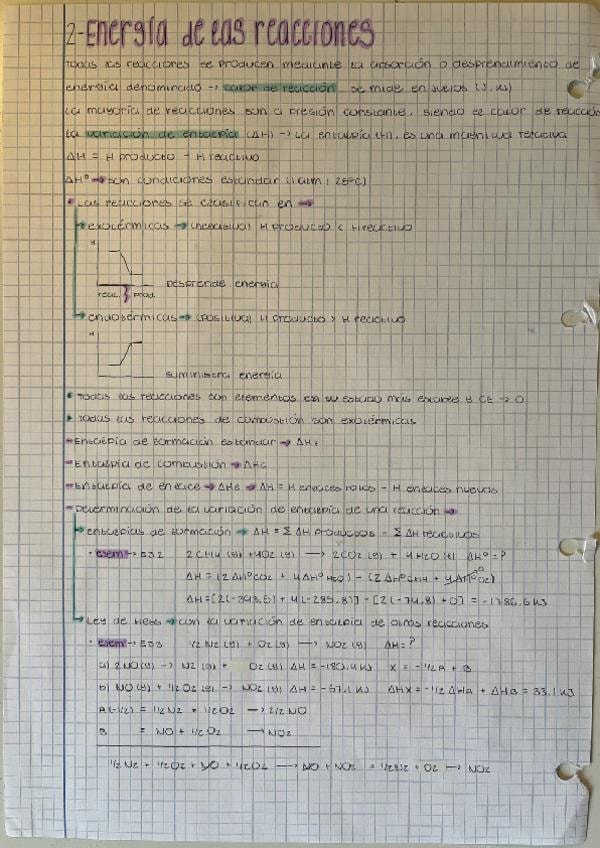 2-Energía de las reacciones
Todas las reacciones se producen mediante la absorción o desprendimiento de
energía denominado → calor de reacción, se mide en Julios (J, KJ)
La mayoría de reacciones son a presión constante, siendo el calor de reacción
la variación de entalpía (ΔH) → La entalpía (H), es una magnitud relativa
ΔH = H producto - H reactivo
ΔH° → son condiciones estándar (1 atm, 25ºC)
• Las reacciones se clasifican en →
exotérmicas → (negativa) H producto < H reactivo
H
desprende energía
reac. prod.
endotérmicas → (positiva) H producto > H reactivo
H
suministra energía
• Todas las reacciones son elementos en su estado más estable y
• Todas las reacciones de combustión son exotérmicas
- Entalpía de formación estandar → ΔHf
- Entalpía de combustión → ΔHc
- Entalpía de enlace → ΔHe → ΔH = H enlaces rotos - H enlaces nuevos
- Determinación de la variación de entalpía de una reacción →
entalpías de formación → ΔH = Σ ΔH productos - Σ ΔH reactivos
• ejem → 2CH4 (g) + 4O2 (g) → 2CO2 (g) + 4H2O (l) ΔH° = ?
ΔH = (2ΔH°CO2 + 4ΔH°H2O) - (2ΔH°CH4 + 4ΔH°O2) 0
ΔH = [2(-393.5) + 4(-285.8)] - [2(-74.8) + 0] = -1780,6 KJ
Ley de Hess → con la variación de entalpía de otras reacciones
• ejem → 1/2 N2 (g) + O2 (g) → NO2 (g) ΔH = ?
a) 2NO (g) → N2 (g) + O2 (g) ΔH = -180.4 KJ X = -1/2 A + B
b) NO (g) + 1/2 O2 (g) → NO2 (g) ΔH = -57.1 KJ ΔHX = -1/2 ΔHA + ΔHB = 33.1 KJ
A (-1/2) = 1/2 N2 + 1/2 O2 → 2/2 NO
B = NO + 1/2 O2 → NO2
1/2 N2 + 1/2 O2 + NO + 1/2 O2 → NO + NO2 = 1/2 N2 + O2 → NO2